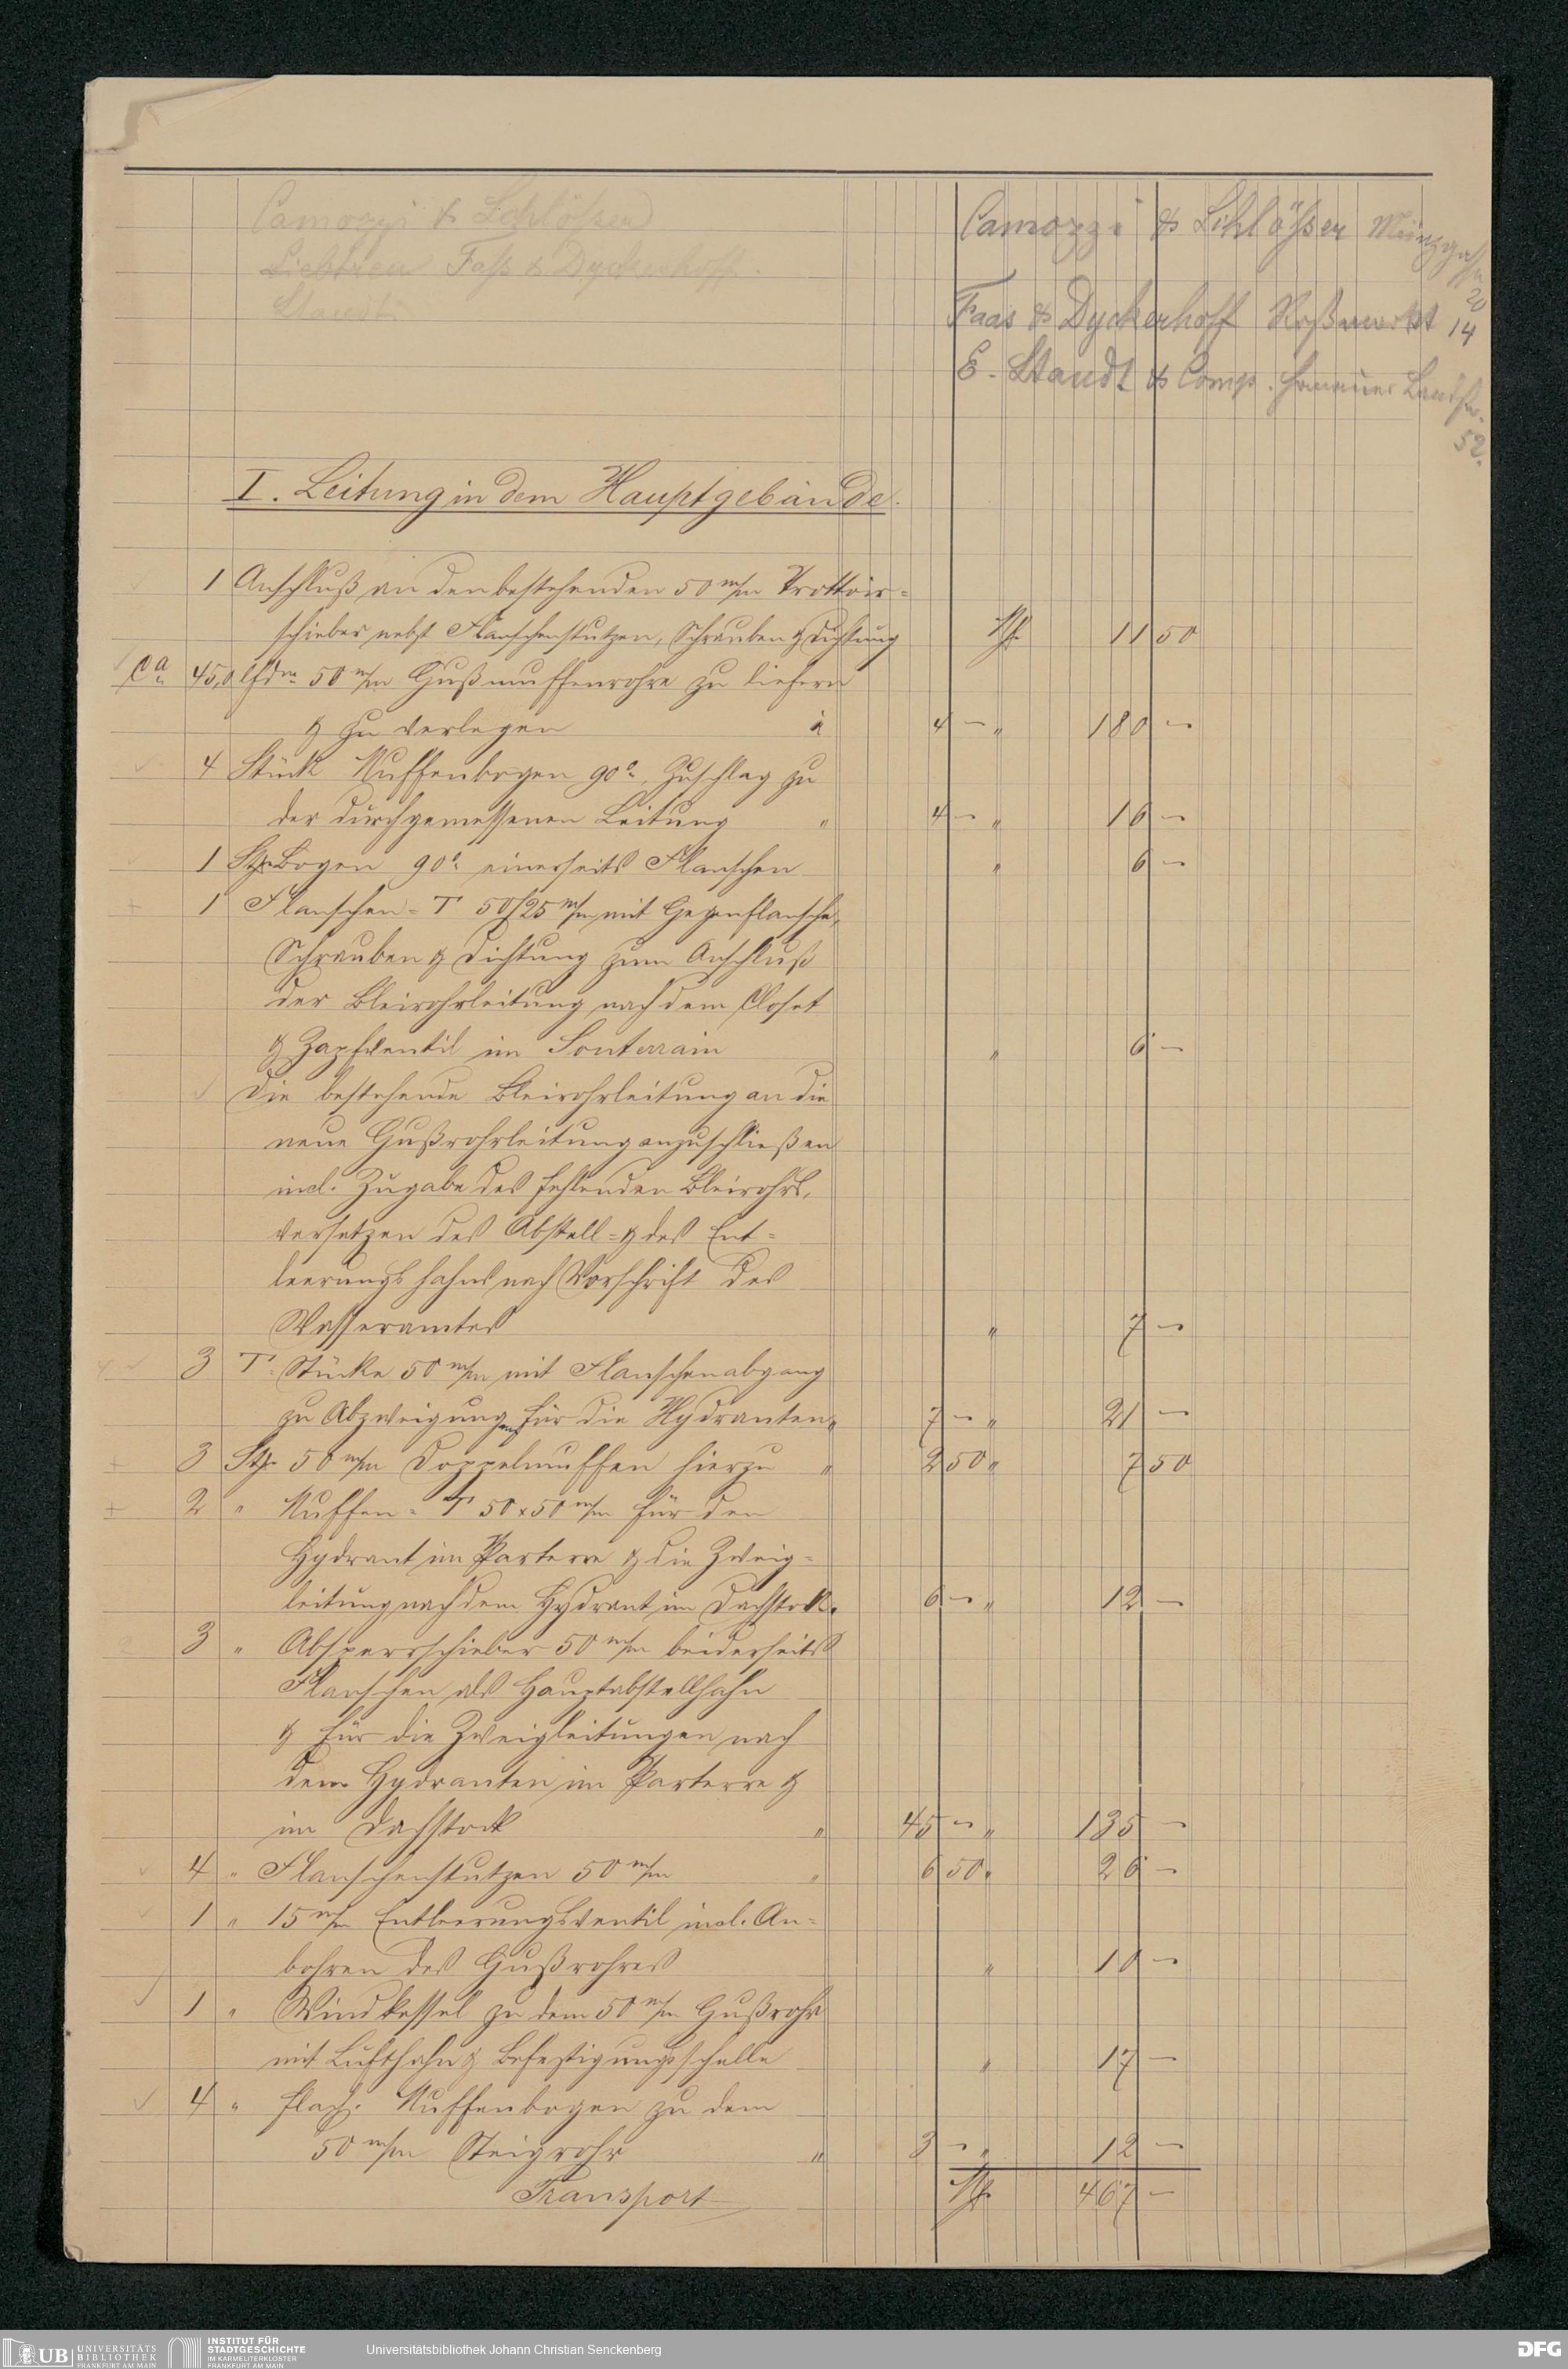 Camozzi & Schlösser
Lichtren Fass & Dyckerhoff
Staudt
Camozzi & Schlösser Münzgasse
20
Faas & Dyckerhoff Roßmarkt 14
E. Staudt & Comp. Hanauer Landstr.
52.
I. Leitung in dem Hauptgebäude.
1 Anschluß an den bestehenden 50 m/m Trottoir-
schieber nebst Flanschenstutzen, Schrauben & Dichtung M 11 50
Ca 45,0 lfdm 50 m/m Gußmuffenrohre zu liefern
& zu verlegen à 4 – " 180 –
4 Stück Muffenbogen 90°, Zuschlag zu
der durchgemessenen Leitung " 4 – " 16 –
1 Stk. Bogen 90° einerseits Flanschen " 6 –
1 Flanschen-T 50/25 m/m mit Gegenflansche,
Schrauben & Dichtung zum Anschluß
der Bleirohrleitung nach dem Closet
& Zapfventil im Souterrain " 6 –
Die bestehende Bleirohrleitung an die
neue Gußrohrleitung anzuschließen
incl. Zugabe des fehlenden Bleirohrs,
versetzen des Abstell- & des Ent-
leerungshahns nach Vorschrift des
Wasseramtes " 7 –
3 T-Stücke 50 m/m mit Flanschenabgang
zu Abzweigungen für die Hydranten " 7 – " 21 –
3 Stk. 50 m/m Doppelmuffen hierzu " 2 50 " 7 50
2 " Muffen-T 50x50 m/m für den
Hydrant im Parterre & die Zweig-
leitung nach dem Hydrant im Dachstock " 6 – " 12 –
3 " Absperrschieber 50 m/m beiderseits
Flanschen als Hauptabstellhahn
& für die Zweigleitungen nach
dem Hydranten im Parterre &
im Dachstock " 45 – " 135 –
4 " Flanschenstutzen 50 m/m " 6 50 " 26 –
1 " 15 m/m Entleerungsventil incl. An-
bohren des Gußrohres " 10 –
1 " Windkessel zu dem 50 m/m Gußrohr
mit Lufthahn & Befestigungsschelle " 17 –
4 " flach. Muffenbogen zu dem
50 m/m Steigrohr " 3 – " 12 –
Transport M 467 –
UB UNIVERSITÄTS
BIBLIOTHEK
FRANKFURT AM MAIN
INSTITUT FÜR
STADTGESCHICHTE
IM KARMELITERKLOSTER
FRANKFURT AM MAIN
Universitätsbibliothek Johann Christian Senckenberg
DFG